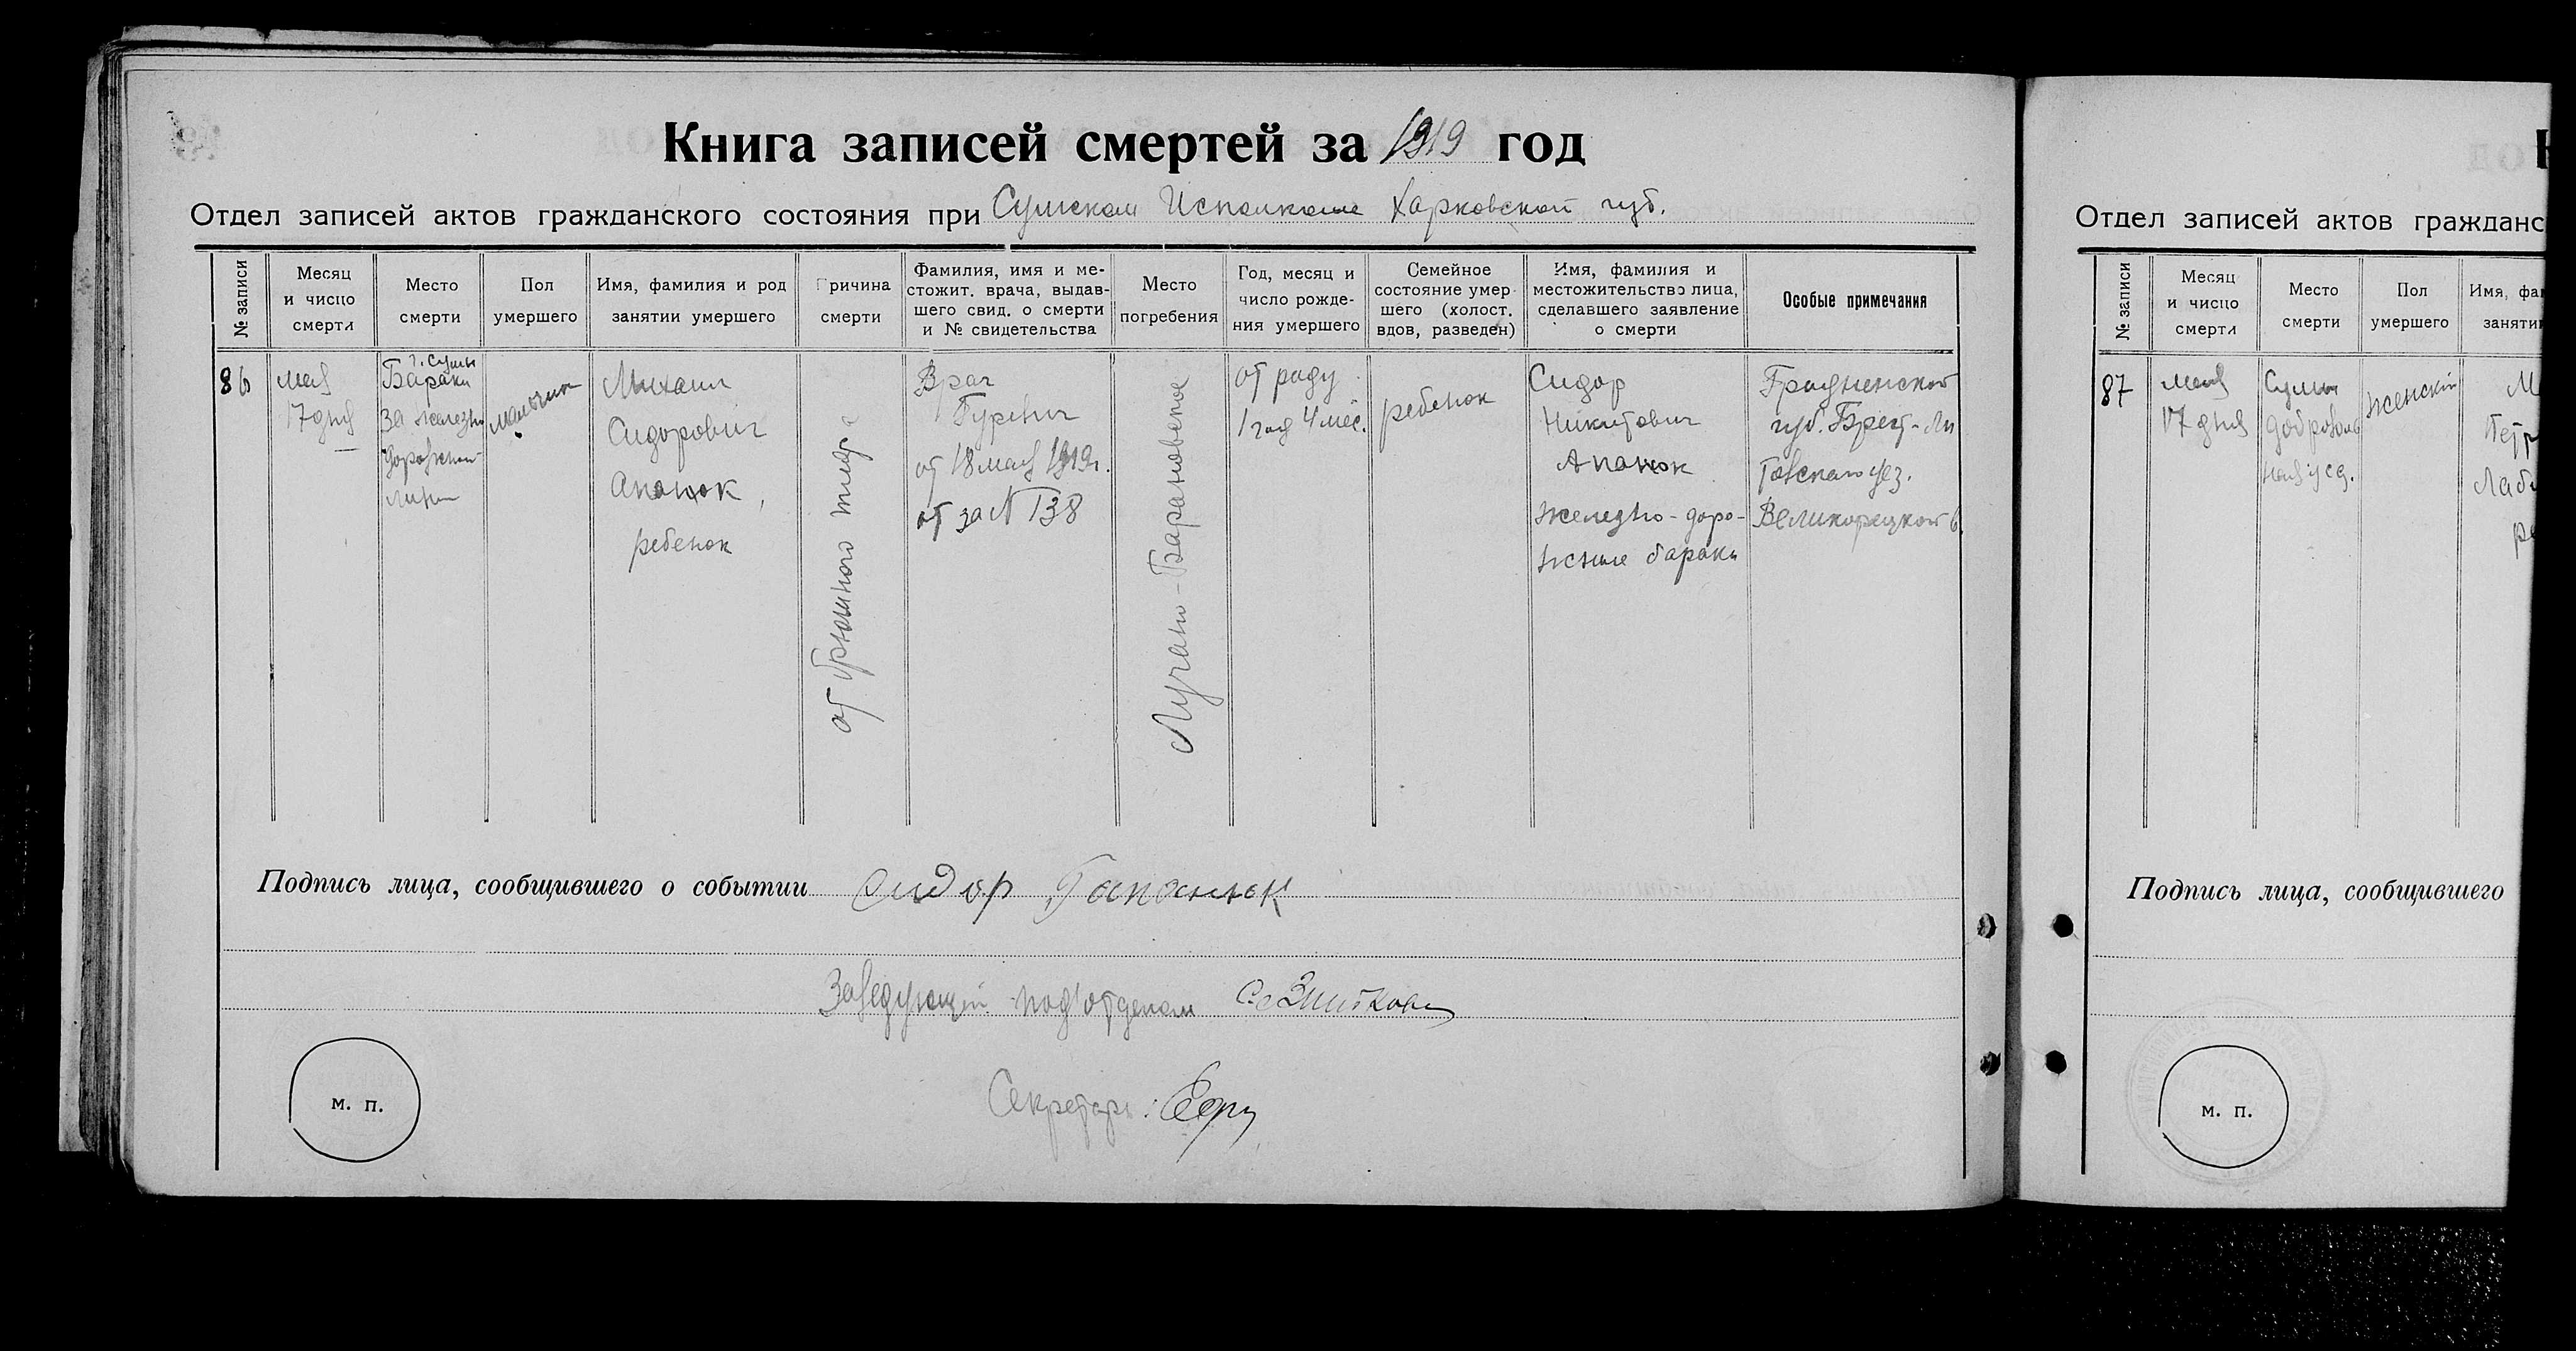 Книга записей смертей за 1919 год
Отдел записей актов гражданского состояния при Сумском Исполкоме Харковской губ.
№ записи
Месяц и чисцо смерти
Место смерти
Пол умершего
Имя, фамилия и род занятии умершего
Причина смерти
Фамилия, имя и местожит. врача, выдавшего свид. о смерти и № свидетельства
Место погребения
Год, месяц и число рождения умершего
Семейное состояние умершего (холост. вдов, разведен)
Имя, фамилия и местожительство лица, сделавшего заявление о смерти
Особые примечания
86
мая
17 дня
г. Сумы
Бараки
за железно
дорожной
лин
мальчик
Михаил
Сидорович
Апанюк,
ребенок
от брюшного тифа
Врач
Гуревич
от 18 мая 1919 г.
от за № 138
Лучано-Барановское
от роду
1 год 4 мес.
ребенок
Сидор
Никитович
Апанюк
железно-доро-
жные бараки
Гродненской
губ. Брест-Ли
товского уез.
Великорецкой в.
Подпись лица, сообщившего о событии Сидор Гапанюк
Заведующий под'отделом
Секретарь:
м. п.
Отдел записей актов гражданс
№ записи
Месяц и чисцо смерти
Место смерти
Пол умершего
Имя, фа
заняти
87
мая
17 дня
Сумы
доброволь
ная усд.
женский
М
Петр
Лаб
ре
Подпись лица, сообщившего
м. п.